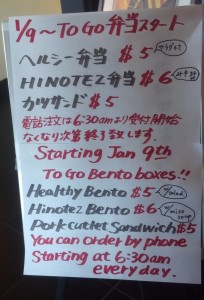 1/9〜TO GO 弁当スタート
ヘルシー弁当 $5 サラダ付
HINOTEZ弁当 $6 みそ汁付
カツサンド $5
電話注文は6:30amより受付開始
なくなり次第終了致します。
Starting Jan 9th
To Go Bento boxes!!
Healthy Bento $5 w/salad
Hinotez Bento $6 w/miso soup
Pork cutlet Sandwich $5
You can order by phone
Starting at 6:30am
every day.